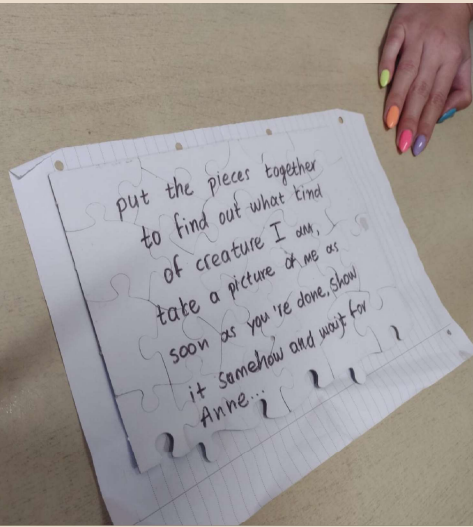 put the pieces together
to find out what kind
of creature I am,
take a picture of me as
soon as you're done, show
it somehow and wait for
Anne...